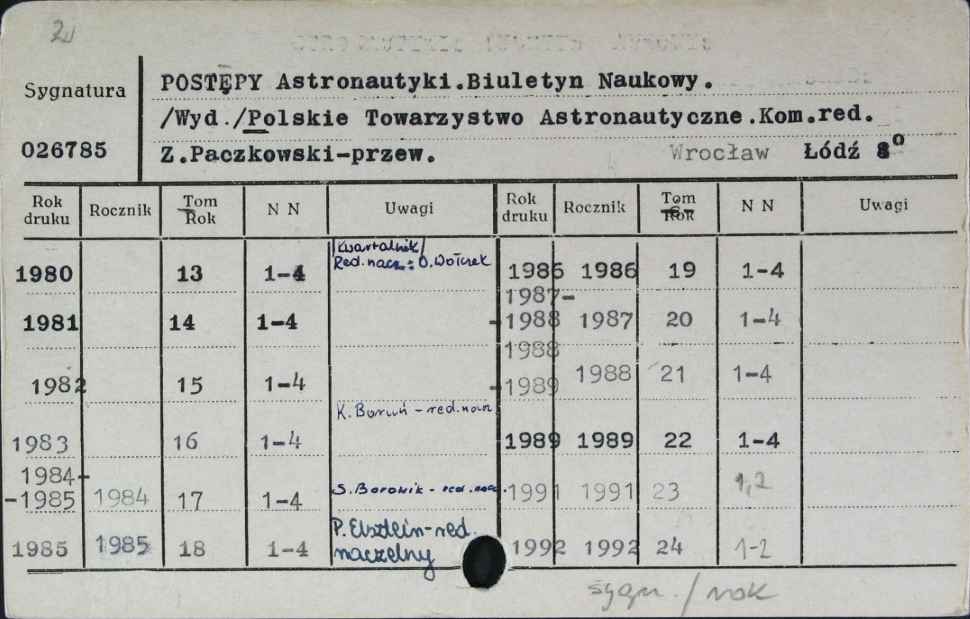 2
Sygnatura
026785
POSTĘPY Astronautyki.Biuletyn Naukowy.
/Wyd./Polskie Towarzystwo Astronautyczne.Kom.red.
Z.Paczkowski-przew. Wrocław Łódź 8°
Rok druku Rocznik Tom Rok N N Uwagi Rok druku Rocznik Tom Rok N N Uwagi
/Kwartalnik/
Red. nacz.: O. Wołczek
1980 13 1-4 1986 1986 19 1-4
1987-
1981 14 1-4 -1988 1987 20 1-4
1988
1982 15 1-4 -1989 1988 21 1-4
K. Boruń - red. nacz
1983 16 1-4 1989 1989 22 1-4
1984-
-1985 1984 17 1-4 S. Borowik - red. nacz. 1991 1991 23 1,2
P. Elsztein-red.
naczelny
1985 1985 18 1-4 1992 1992 24 1-2
sygn. / rok